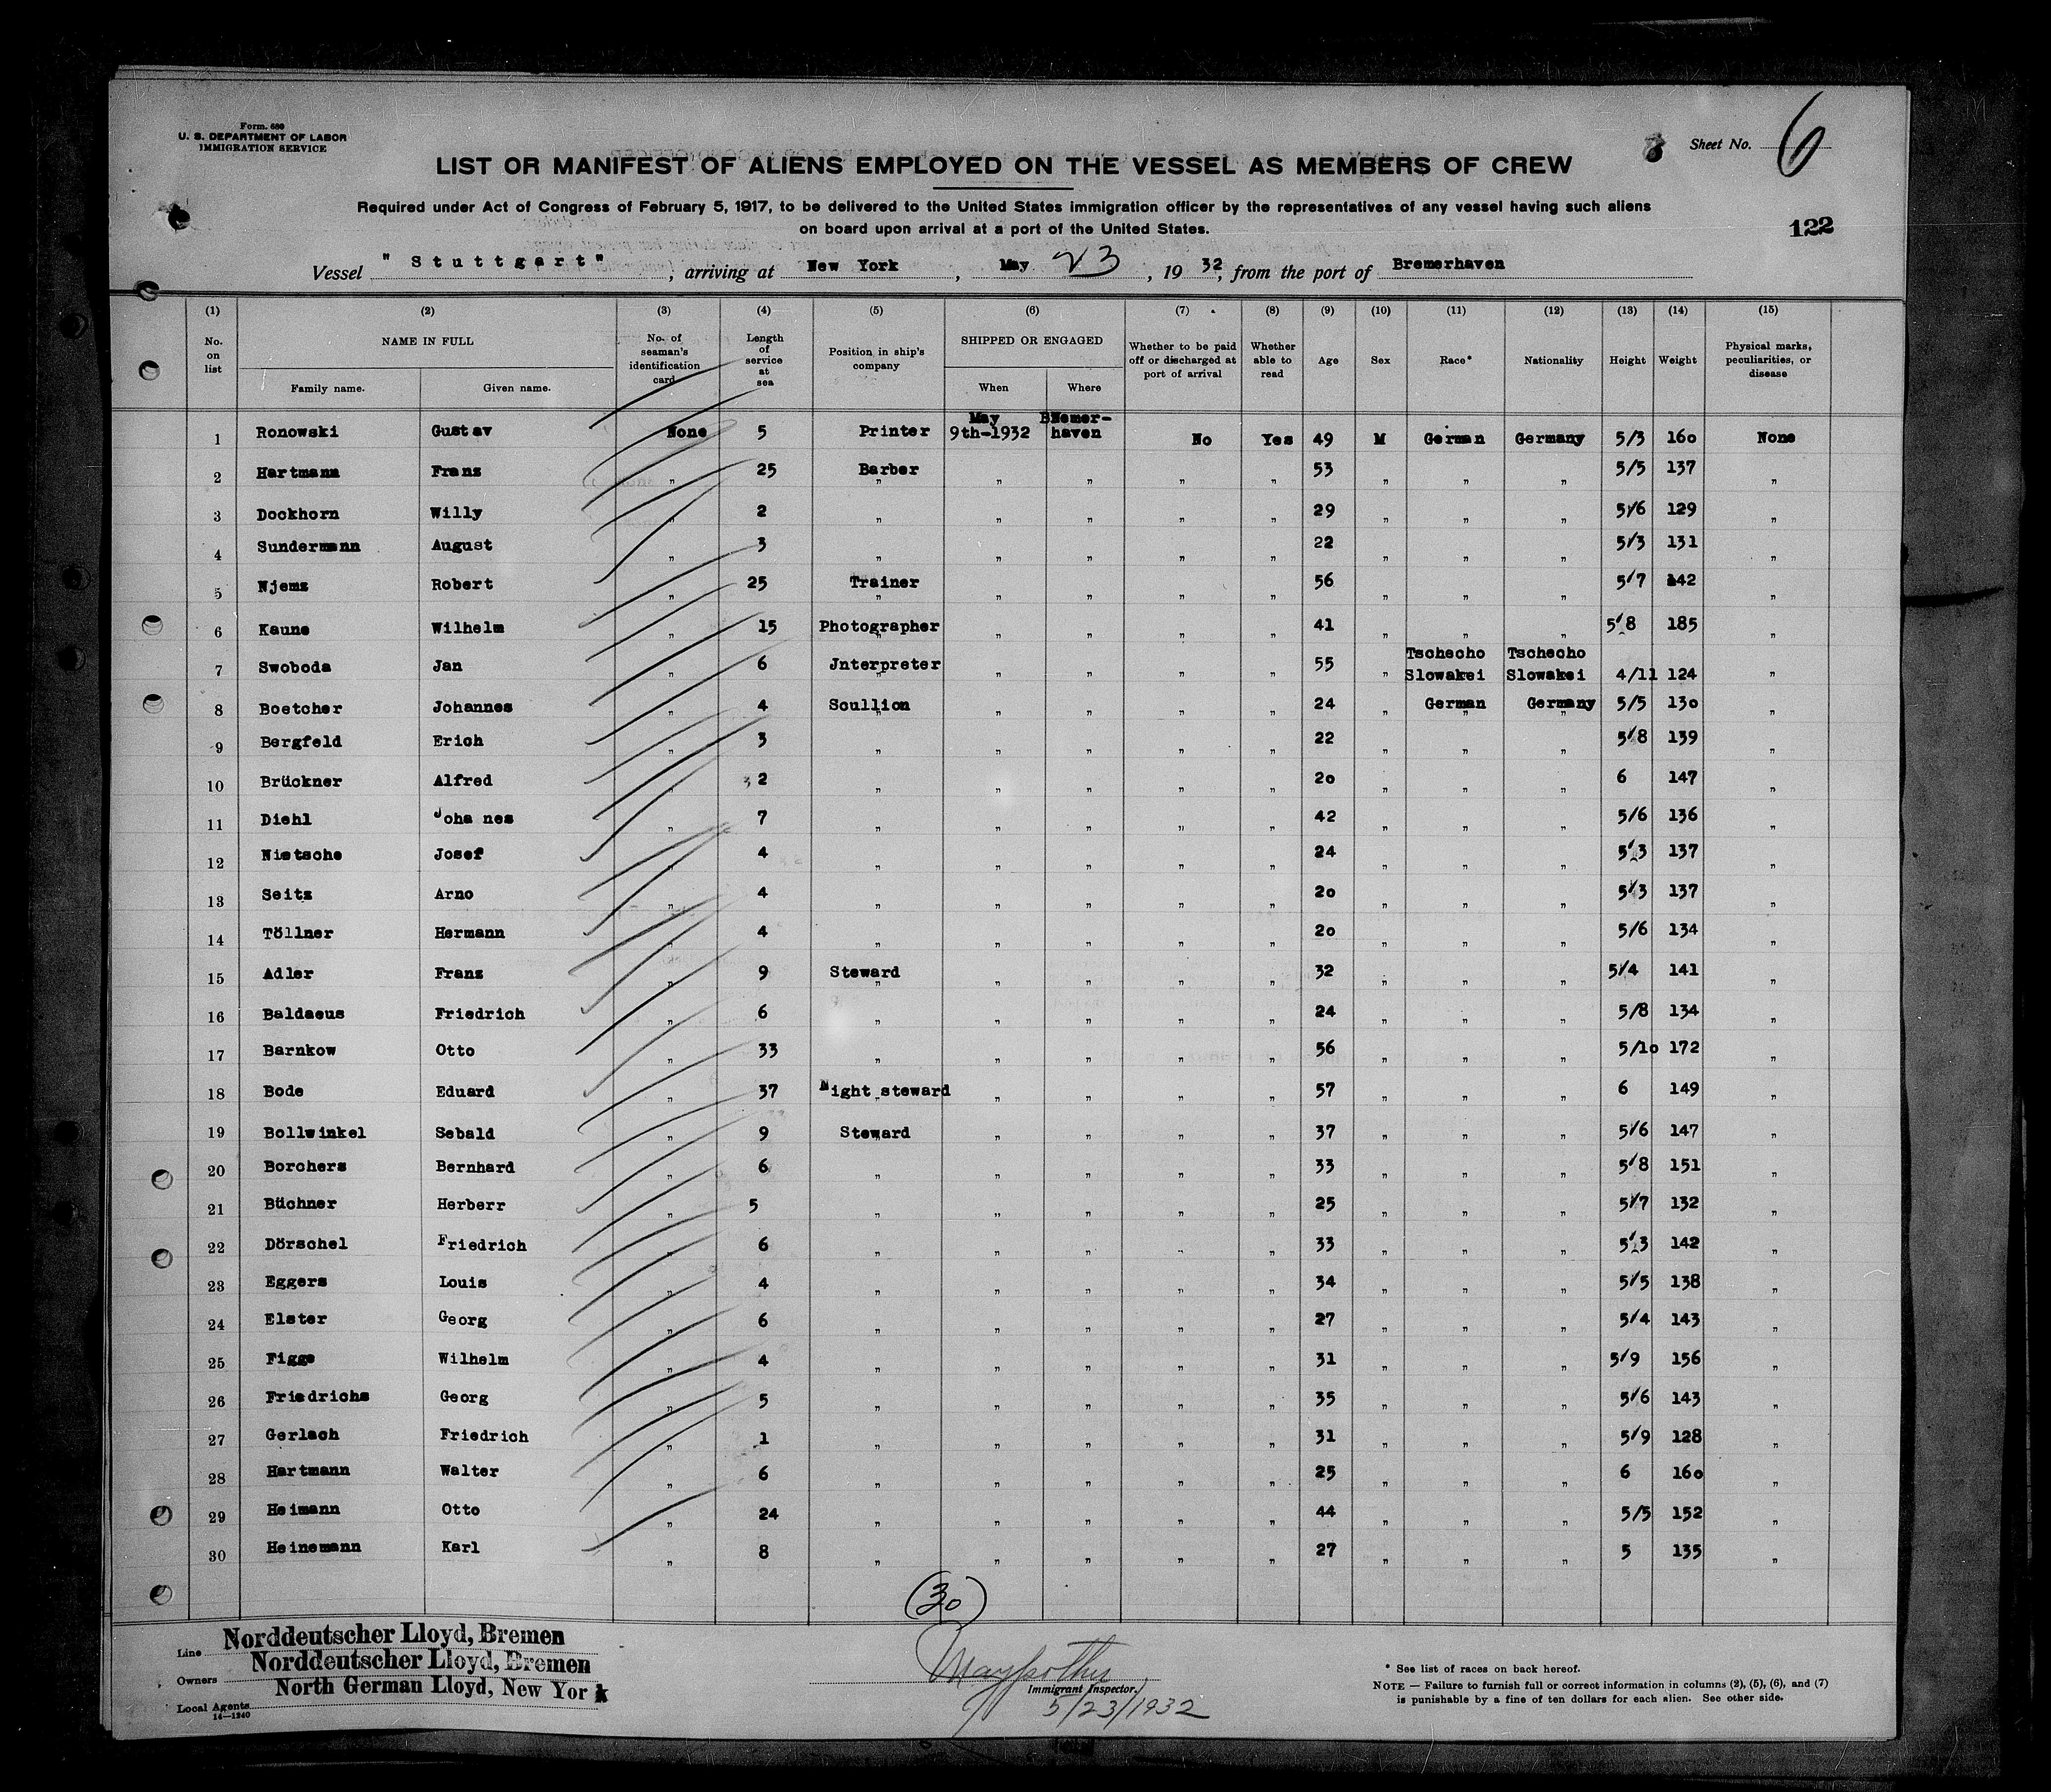 Form. 680
U. S. DEPARTMENT OF LABOR
IMMIGRATION SERVICE
Sheet No. 6
LIST OR MANIFEST OF ALIENS EMPLOYED ON THE VESSEL AS MEMBERS OF CREW
Required under Act of Congress of February 5, 1917, to be delivered to the United States immigration officer by the representatives of any vessel having such aliens
on board upon arrival at a port of the United States.
122
Vessel "Stuttgart", arriving at New York, May 23, 1932, from the port of Bremerhaven
(1) (2) (3) (4) (5) (6) (7) (8) (9) (10) (11) (12) (13) (14) (15)
No. on list NAME IN FULL Family name. Given name. No. of seaman's identification card Length of service at sea Position in ship's company SHIPPED OR ENGAGED When Where Whether to be paid off or discharged at port of arrival Whether able to read Age Sex Race* Nationality Height Weight Physical marks, peculiarities, or disease
1 Ronowski Gustav None 5 Printer May 9th-1932 Bremer-haven No Yes 49 M German Germany 5/3 160 None
2 Hartmann Franz „ 25 Barber „ „ „ „ „ 53 „ „ „ 5/5 137 „
3 Dockhorn Willy „ 2 „ „ „ „ „ 29 „ „ „ 5/6 129 „
4 Sundermann August „ 3 „ „ „ „ „ 22 „ „ „ 5/3 131 „
5 Njemz Robert „ 25 Trainer „ „ „ „ „ 56 „ „ „ 5/7 142 „
6 Kaune Wilhelm „ 15 Photographer „ „ „ „ „ 41 „ „ „ 5/8 185 „
7 Swoboda Jan „ 6 Jnterpreter „ „ „ „ „ 55 „ Tschecho Slowakei Tschecho Slowakei 4/11 124 „
8 Boetcher Johannes „ 4 Scullion „ „ „ „ „ 24 „ German „ Germany „ 5/5 130 „
9 Bergfeld Erich „ 3 „ „ „ „ „ 22 „ „ „ 5/8 139 „
10 Brückner Alfred „ 2 „ „ „ „ „ 20 „ „ „ 6 147 „
11 Diehl Joha nes „ 7 „ „ „ „ „ 42 „ „ „ 5/6 136 „
12 Nietsche Josef „ 4 „ „ „ „ „ 24 „ „ „ 5/3 137 „
13 Seitz Arno „ 4 „ „ „ „ „ 20 „ „ „ 5/3 137 „
14 Töllner Hermann „ 4 „ „ „ „ „ 20 „ „ „ 5/6 134 „
15 Adler Franz „ 9 Steward „ „ „ „ „ 32 „ „ „ 5/4 141 „
16 Baldaeus Friedrich „ 6 „ „ „ „ „ 24 „ „ „ 5/8 134 „
17 Barnkow Otto „ 33 „ „ „ „ „ 56 „ „ „ 5/10 172 „
18 Bode Eduard „ 37 Night steward „ „ „ „ „ 57 „ „ „ 6 149 „
19 Bollwinkel Sebald „ 9 Steward „ „ „ „ „ 37 „ „ „ 5/6 147 „
20 Borchers Bernhard „ 6 „ „ „ „ „ 33 „ „ „ 5/8 151 „
21 Büchner Herberr „ 5 „ „ „ „ „ 25 „ „ „ 5/7 132 „
22 Dörschel Friedrich „ 6 „ „ „ „ „ 33 „ „ „ 5/3 142 „
23 Eggers Louis „ 4 „ „ „ „ „ 34 „ „ „ 5/5 138 „
24 Elster Georg „ 6 „ „ „ „ „ 27 „ „ „ 5/4 143 „
25 Figge Wilhelm „ 4 „ „ „ „ „ 31 „ „ „ 5/9 156 „
26 Friedrichs Georg „ 5 „ „ „ „ „ 35 „ „ „ 5/6 143 „
27 Gerlach Friedrich „ 1 „ „ „ „ „ 31 „ „ „ 5/9 128 „
28 Hartmann Walter „ 6 „ „ „ „ „ 25 „ „ „ 6 160 „
29 Heimann Otto „ 24 „ „ „ „ „ 44 „ „ „ 5/5 152 „
30 Heinemann Karl „ 8 „ „ „ „ „ 27 „ „ „ 5 135 „
(30)
Line Norddeutscher Lloyd, Bremen
Owners Norddeutscher Lloyd, Bremen
Local Agents North German Lloyd, New York
14—1240
Immigrant Inspector.
5/23/1932
* See list of races on back hereof.
NOTE — Failure to furnish full or correct information in columns (2), (5), (6), and (7)
is punishable by a fine of ten dollars for each alien. See other side.